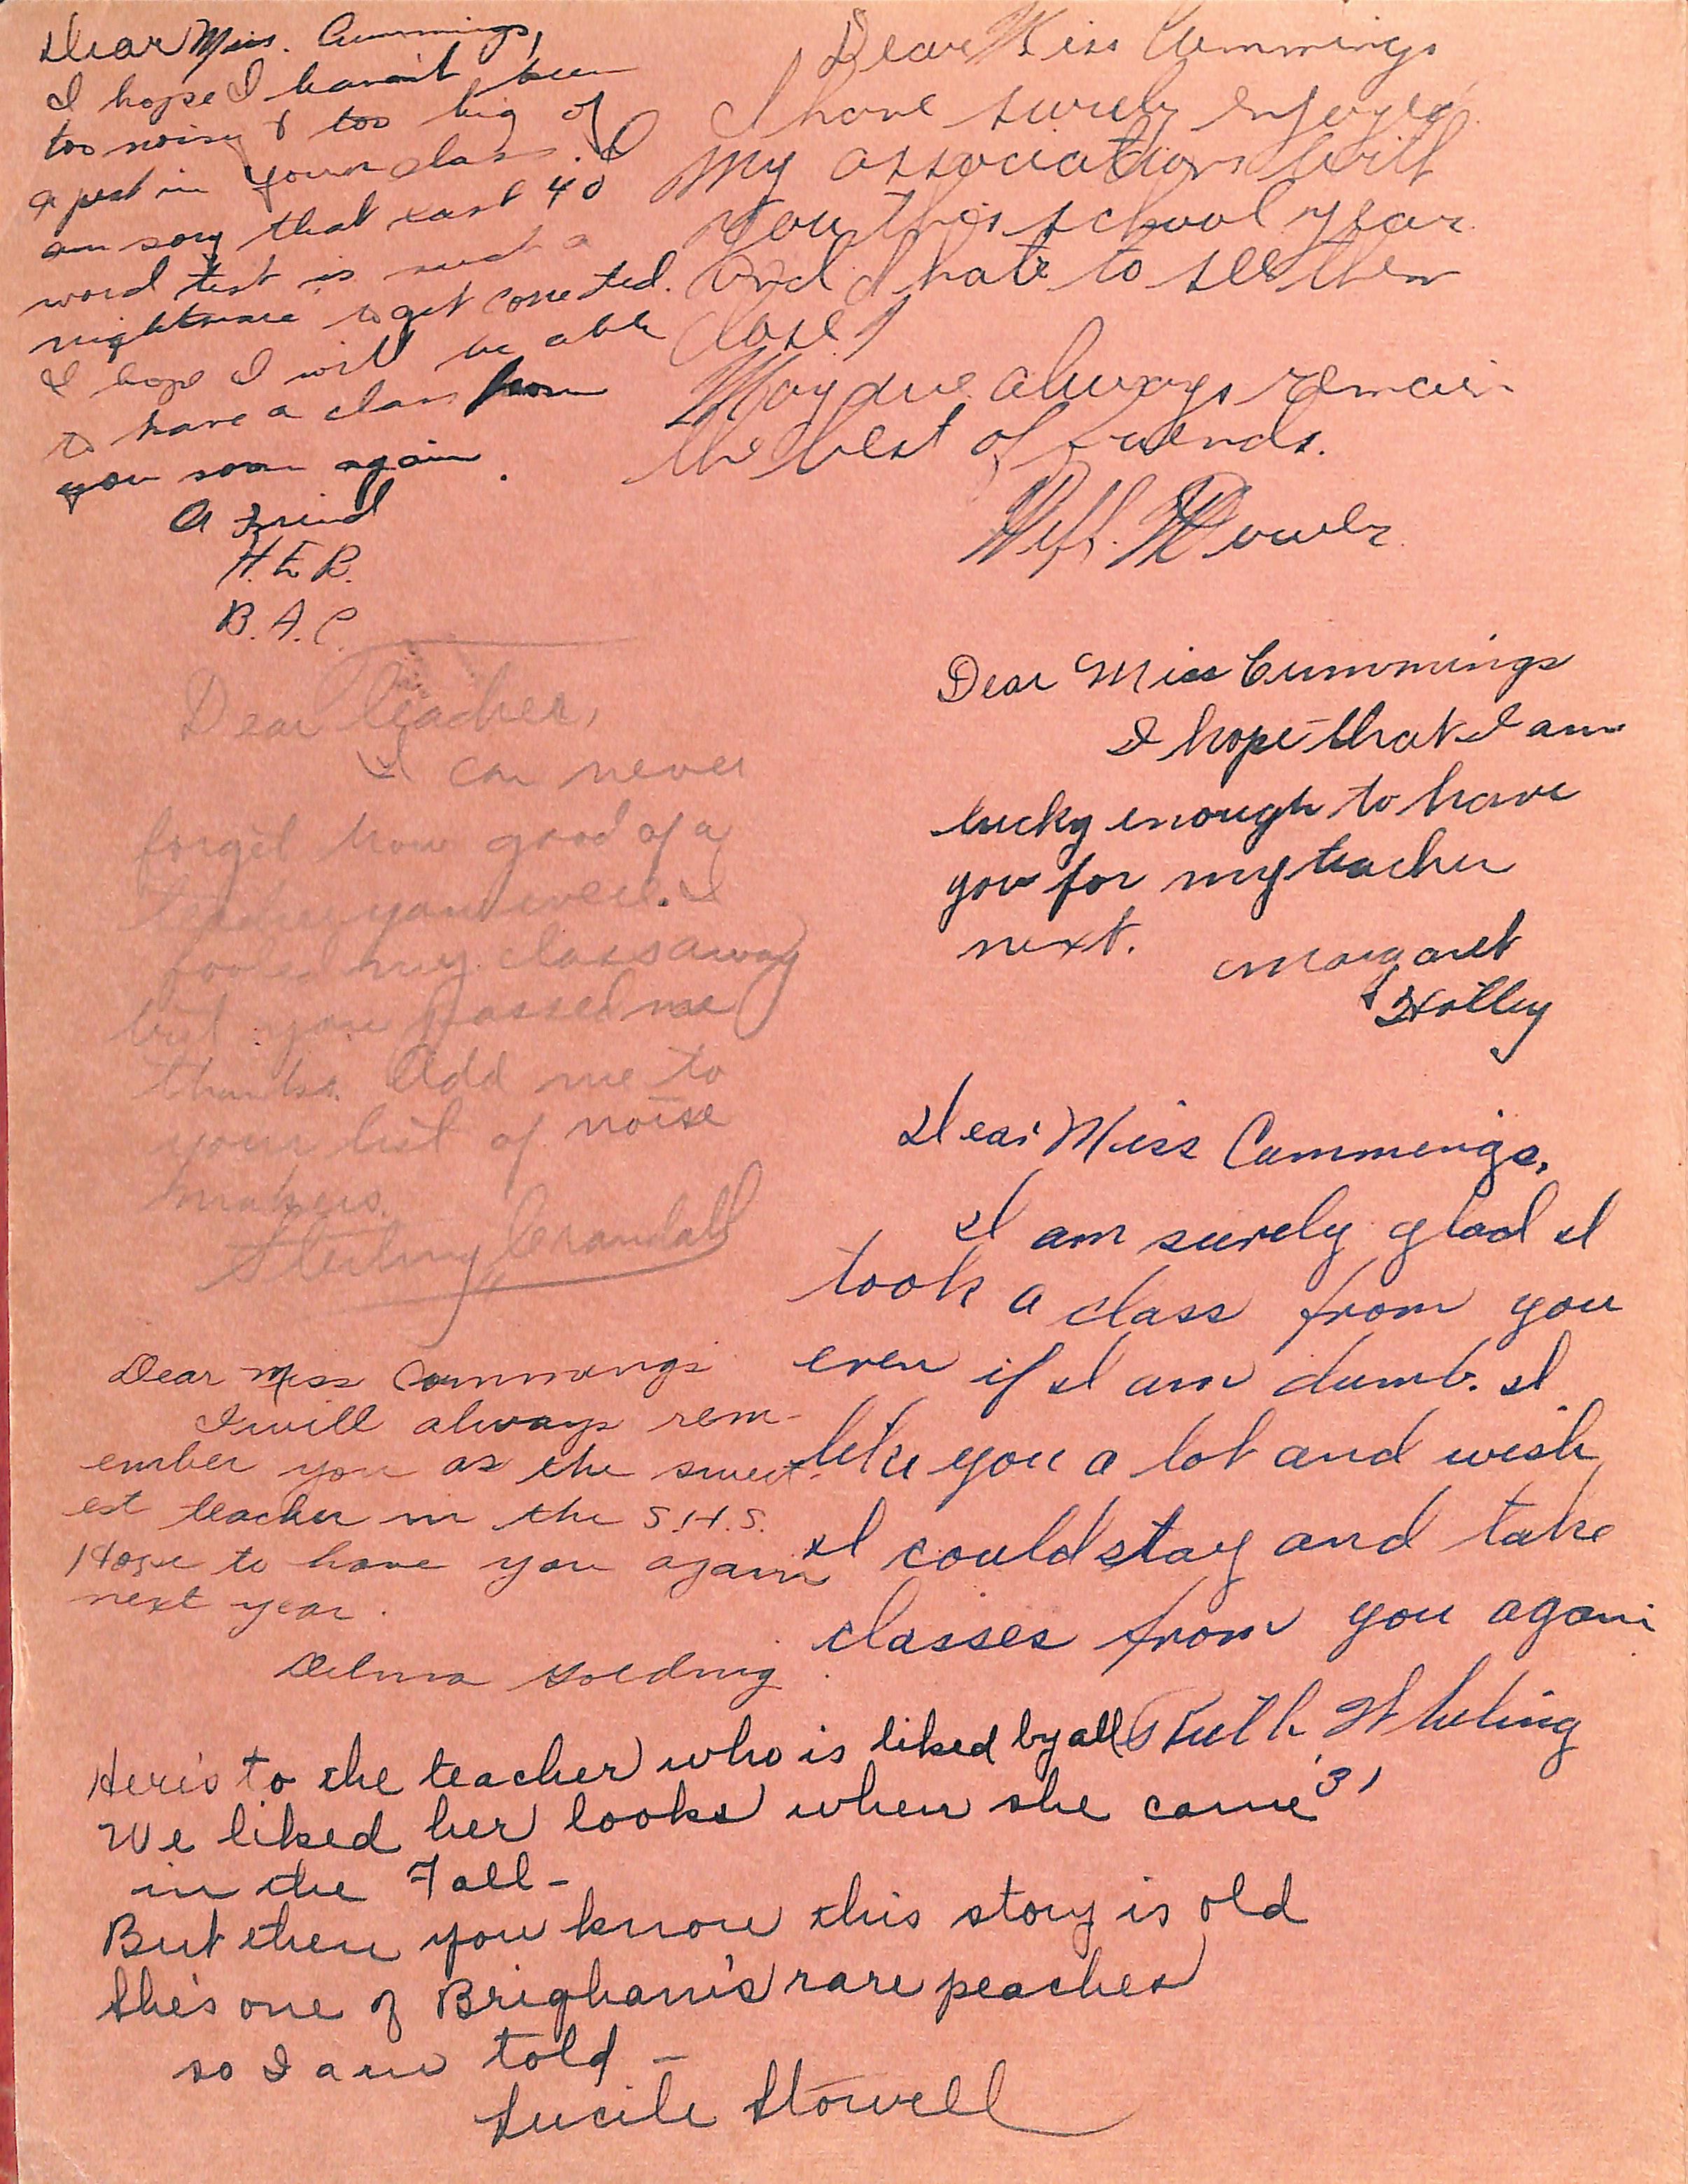 Dear Miss. Cummings,
I hope I havn't been
too noisy & too big of
a pest in your class. I
am sory that last 40
word test is such a
nightmare to get corrected.
I hope I will be able
to have a class from
you soon again.
A Friend
H.E.R.
B.A.C.
Dear Miss Cummings
I have surely enjoyed
my associations with
you this school year
and I hate to see them
close!
May we always remain
the best of friends.
Dear Teacher,
I can never
forget how good of a
teacher you were. I
fooled my class away
but you passed me
thanks. Add me to
your list of noise
makers.
Sterling Crandall
Dear Miss Cummings
I hope that I am
lucky enough to have
you for my teacher
next.
Margaret
Holley
Dear Miss Cummings,
I am surely glad I
took a class from you
even if I am dumb. I
like you a lot and wish
I could stay and take
classes from you again
Ruth Whiting
'31
Dear Miss Cummings
I will always rem-
ember you as the sweet-
est teacher in the S.H.S.
Hope to have you again
next year.
Delma
Here's to the teacher who is liked by all
We liked her looks when she came
in the Fall -
But then you know this story is old
She's one of Brigham's rare peaches
so I am told -
Lucile Stowell